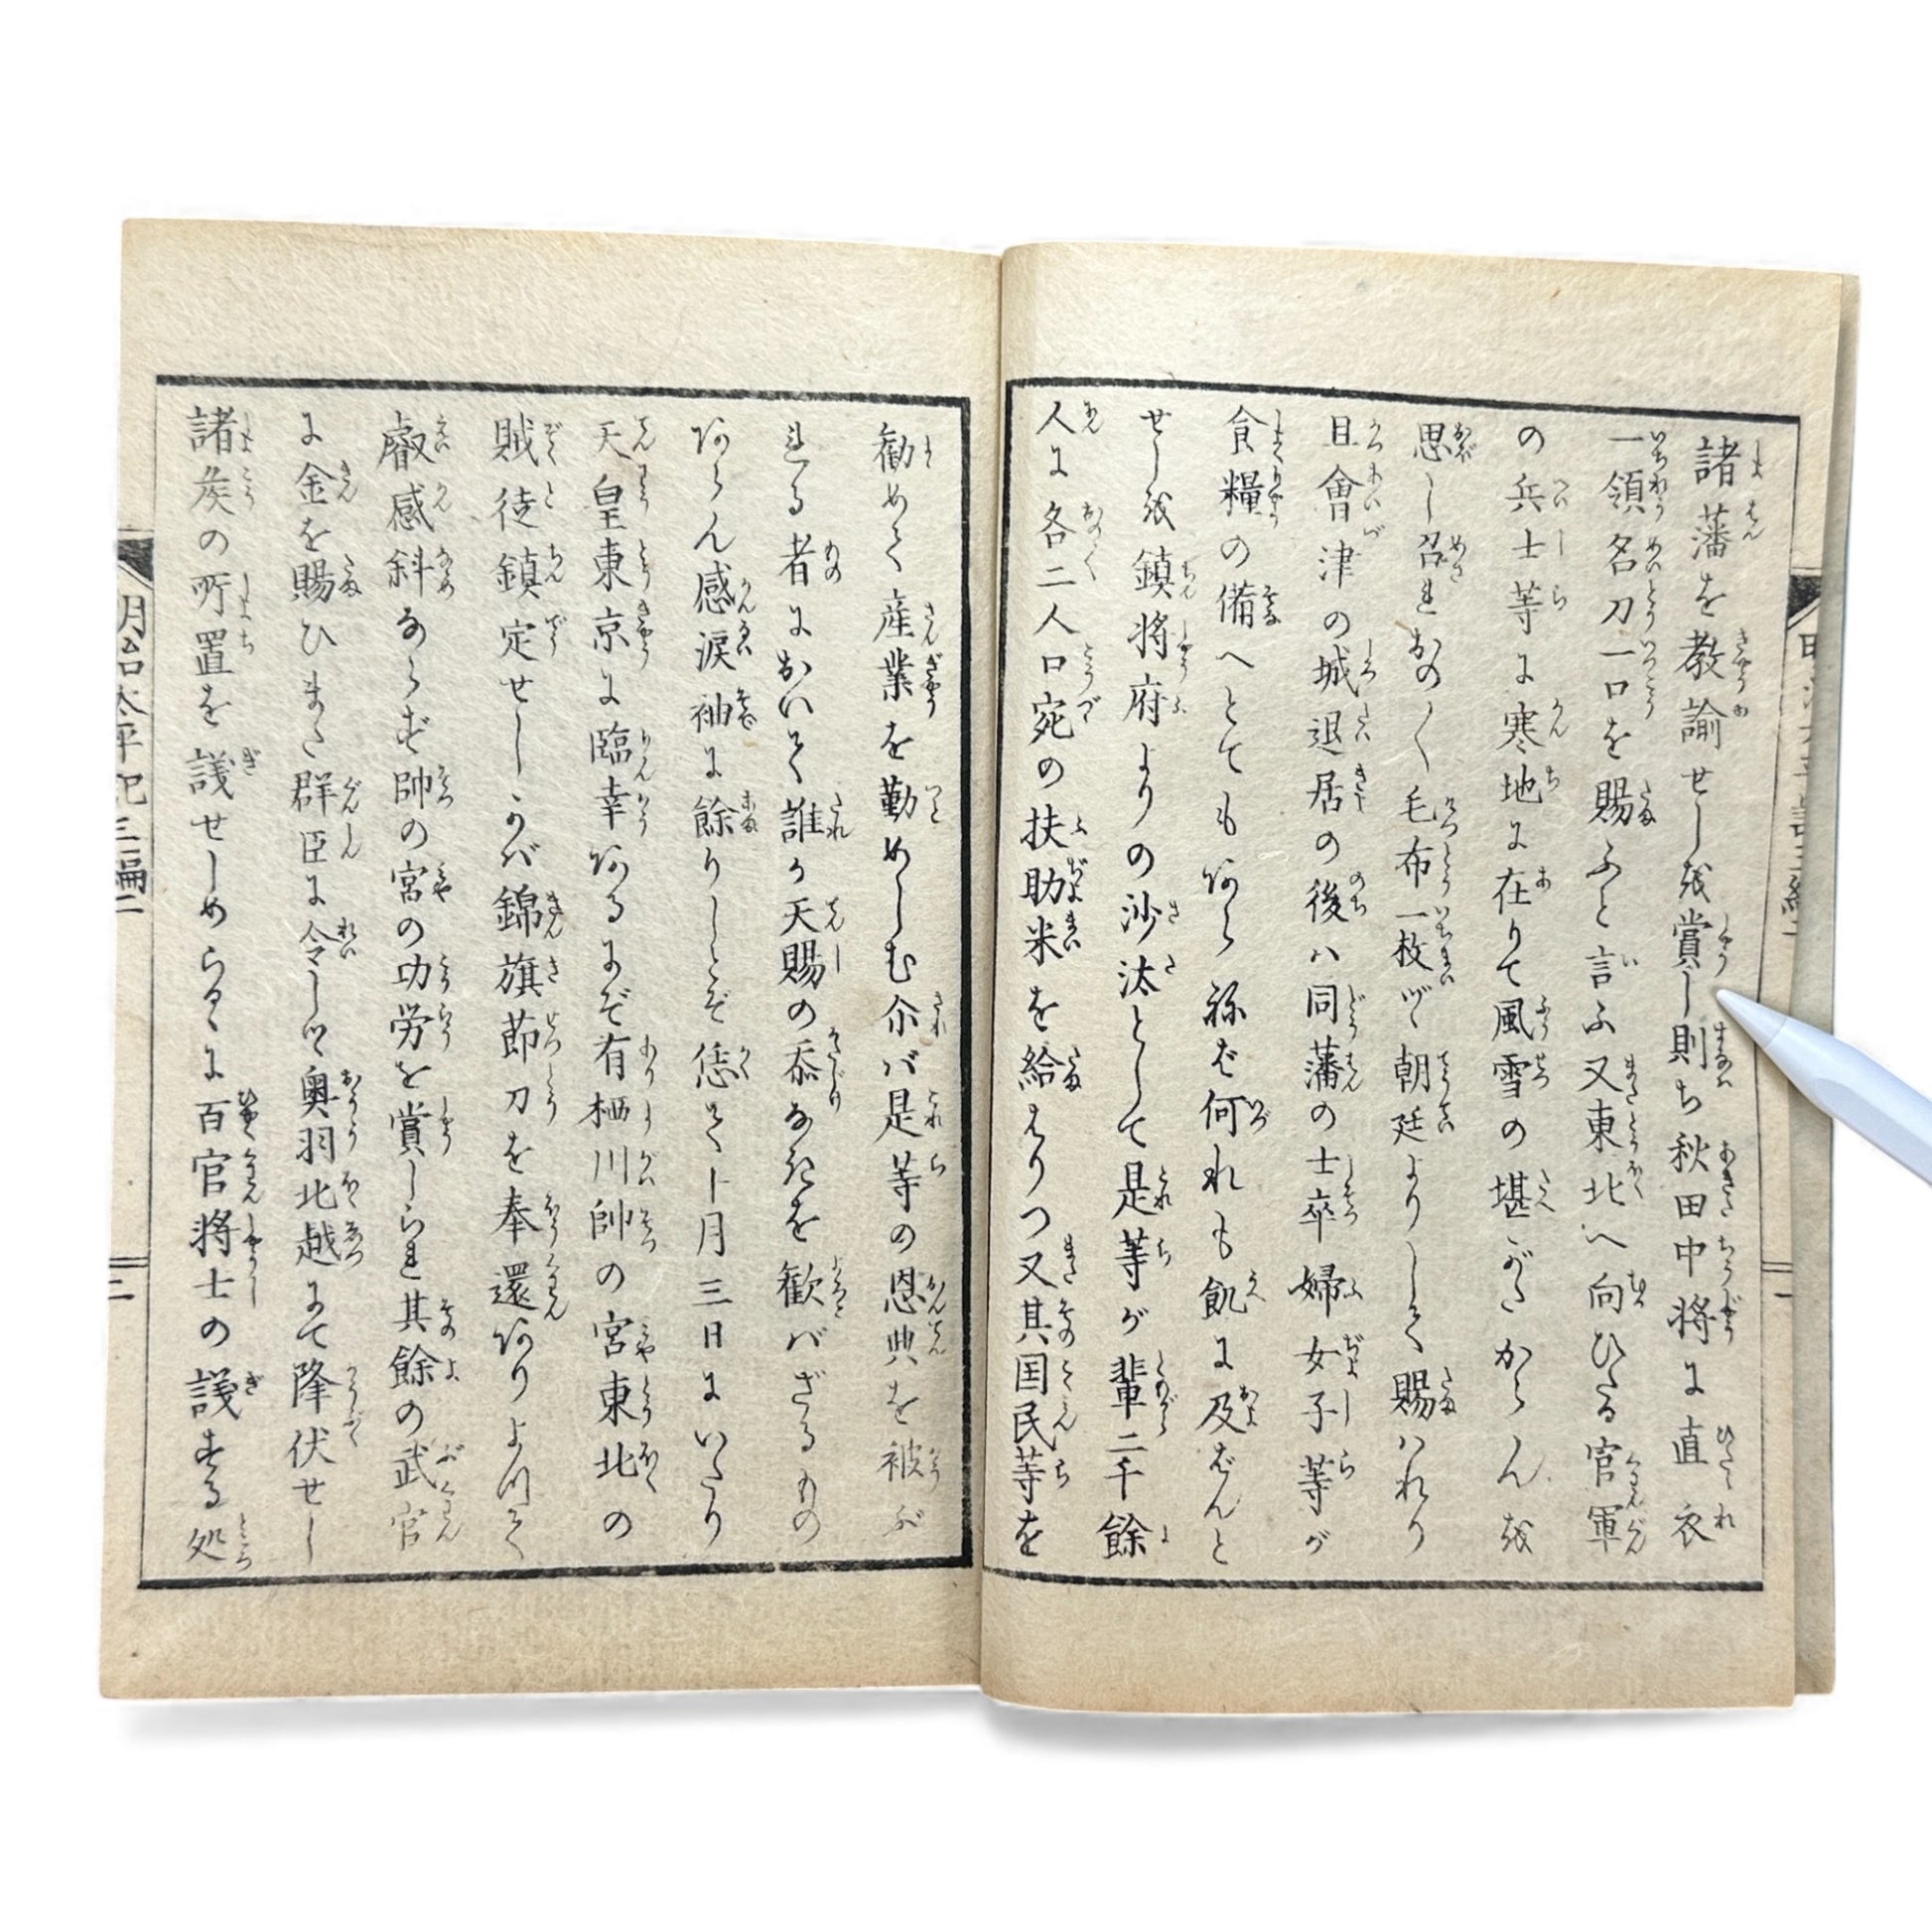 諸藩を教諭せし哉賞し則ち秋田中将に直衣
一領名刀一口を賜ふと言ふ又東北へ向ひたる官軍
の兵士等に寒地に在りて風雪の堪がたからん哉
思し召れおの〱毛布一枚ヅヽ朝廷よりして賜ハれり
且會津の城退居の後ハ同藩の士卒婦女子等が
食糧の備へとてもあらねば何れも飢に及ばんと
せし哉鎮将府よりの沙汰として是等が輩二千餘
人に各二人口宛の扶助米を給はりつ又其国民等を
勧めて産業を勤めしむ尒バ是等の恩典を被ぶ
れる者において誰か天賜の忝なきを歓バざるもの
あらん感涙袖に餘りしとぞ恁て十月三日にいたり
天皇東京に臨幸あるにぞ有栖川帥の宮東北の
賊徒鎮定せしかバ錦旗節刀を奉還ありよつて
叡感斜ならず帥の宮の功労を賞しられ其餘の武官
に金を賜ひまた群臣に令しツヽ奥羽北越にて降伏せし
諸矦の所置を議せしめらるゝに百官将士の議する処
明治太平記三編二
二